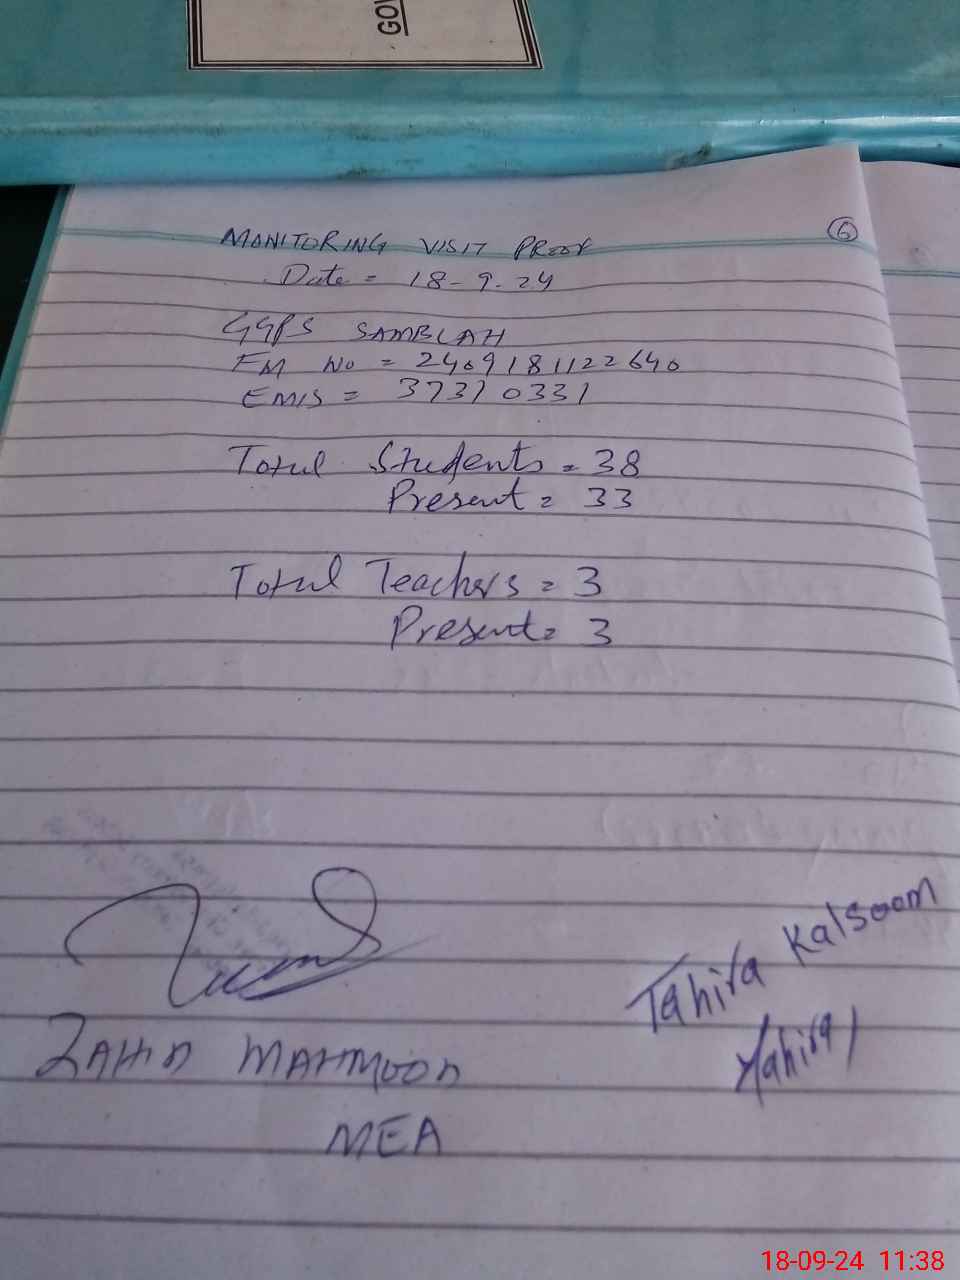 GOV
6
MONITORING VISIT PROOF
Date = 18-9-24
GGPS SAMBLAH
FM No = 2409181122640
EMIS = 37310331
Total Students = 38
Present = 33
Total Teachers = 3
Present = 3
Tahira Kalsoom
Tahira
ZAHID MAHMOOD
MEA
18-09-24 11:38